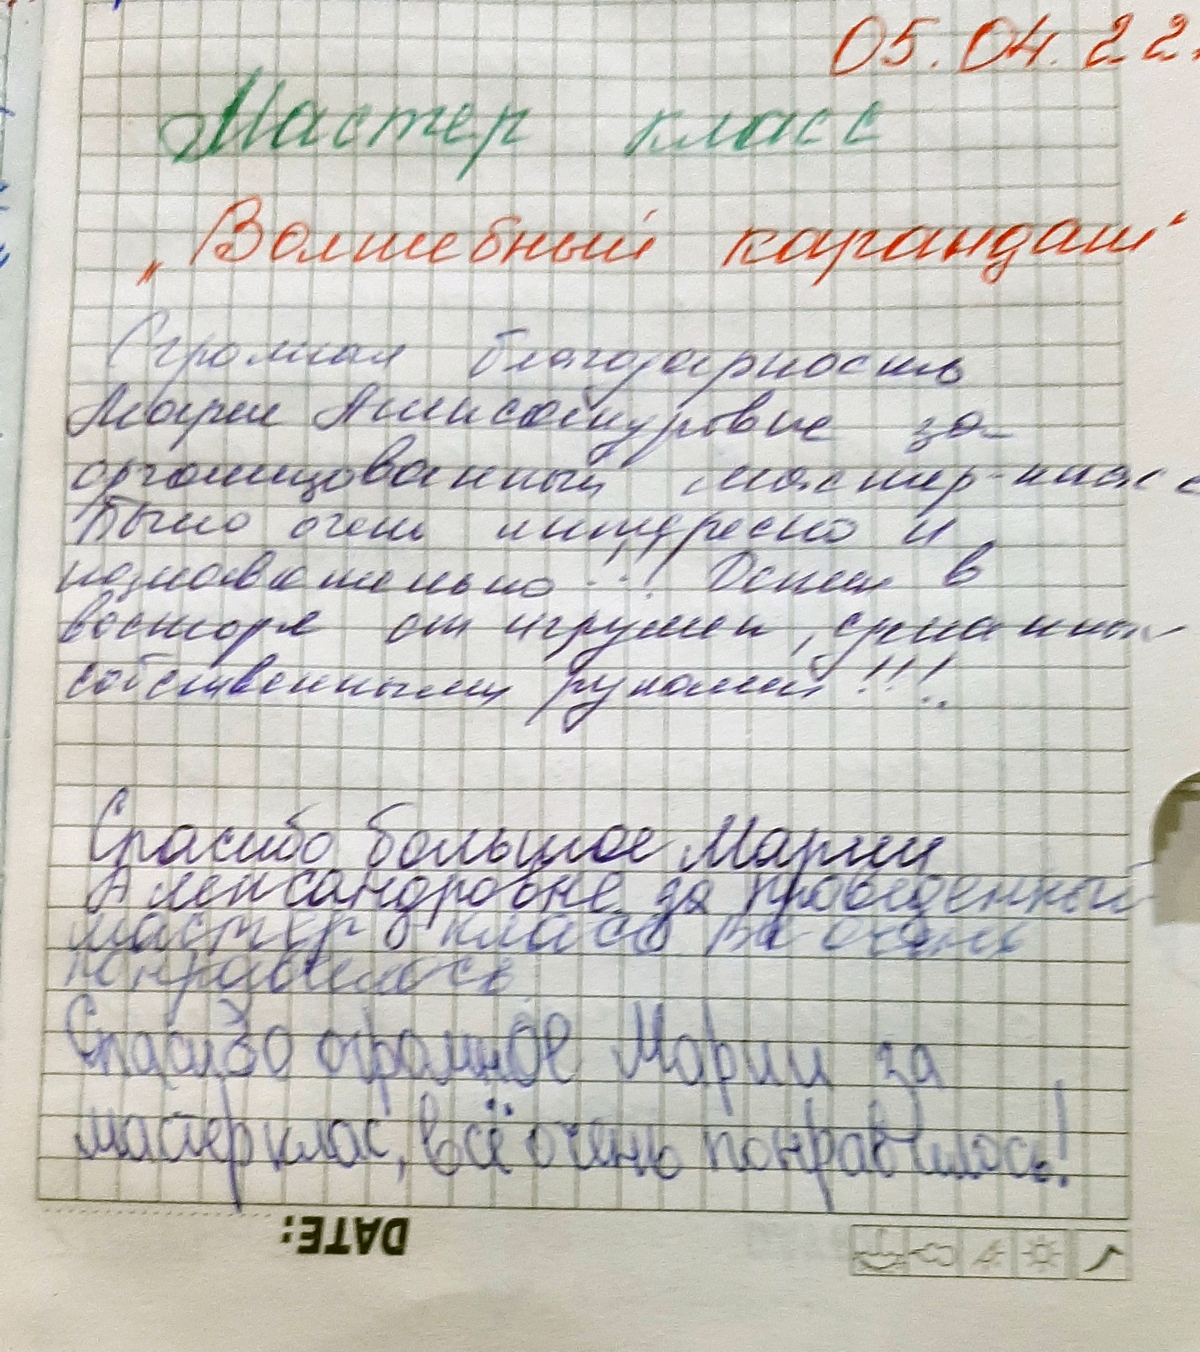 05.04.22.
Мастер класс
„Волшебный карандаш“
Огромная благодарность
Марии Александровне за
организованный мастер-класс
Было очень интересно и
познавательно!!! Дети в
восторге от игрушек, сделанных
собственными руками!!!
Спасибо большое Марии
Александровне за проведенный
мастер класс очень
понравилось
Спасибо огромное Марии за
мастер клас, всё очень понравилось!
DATE: